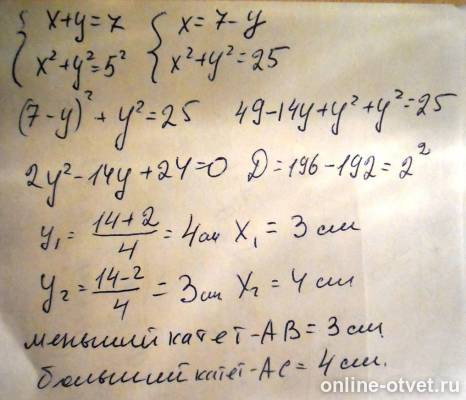 { x+y=7 { x=7-y
x²+y²=5² x²+y²=25
(7-y)²+y²=25 49-14y+y²+y²=25
2y²-14y+24=0 D=196-192=2²
y₁=14+2/4=4см x₁=3см
y₂=14-2/4=3см x₂=4см
меньший катет-AB=3см
больший катет-AC=4см.
online-otvet.ru